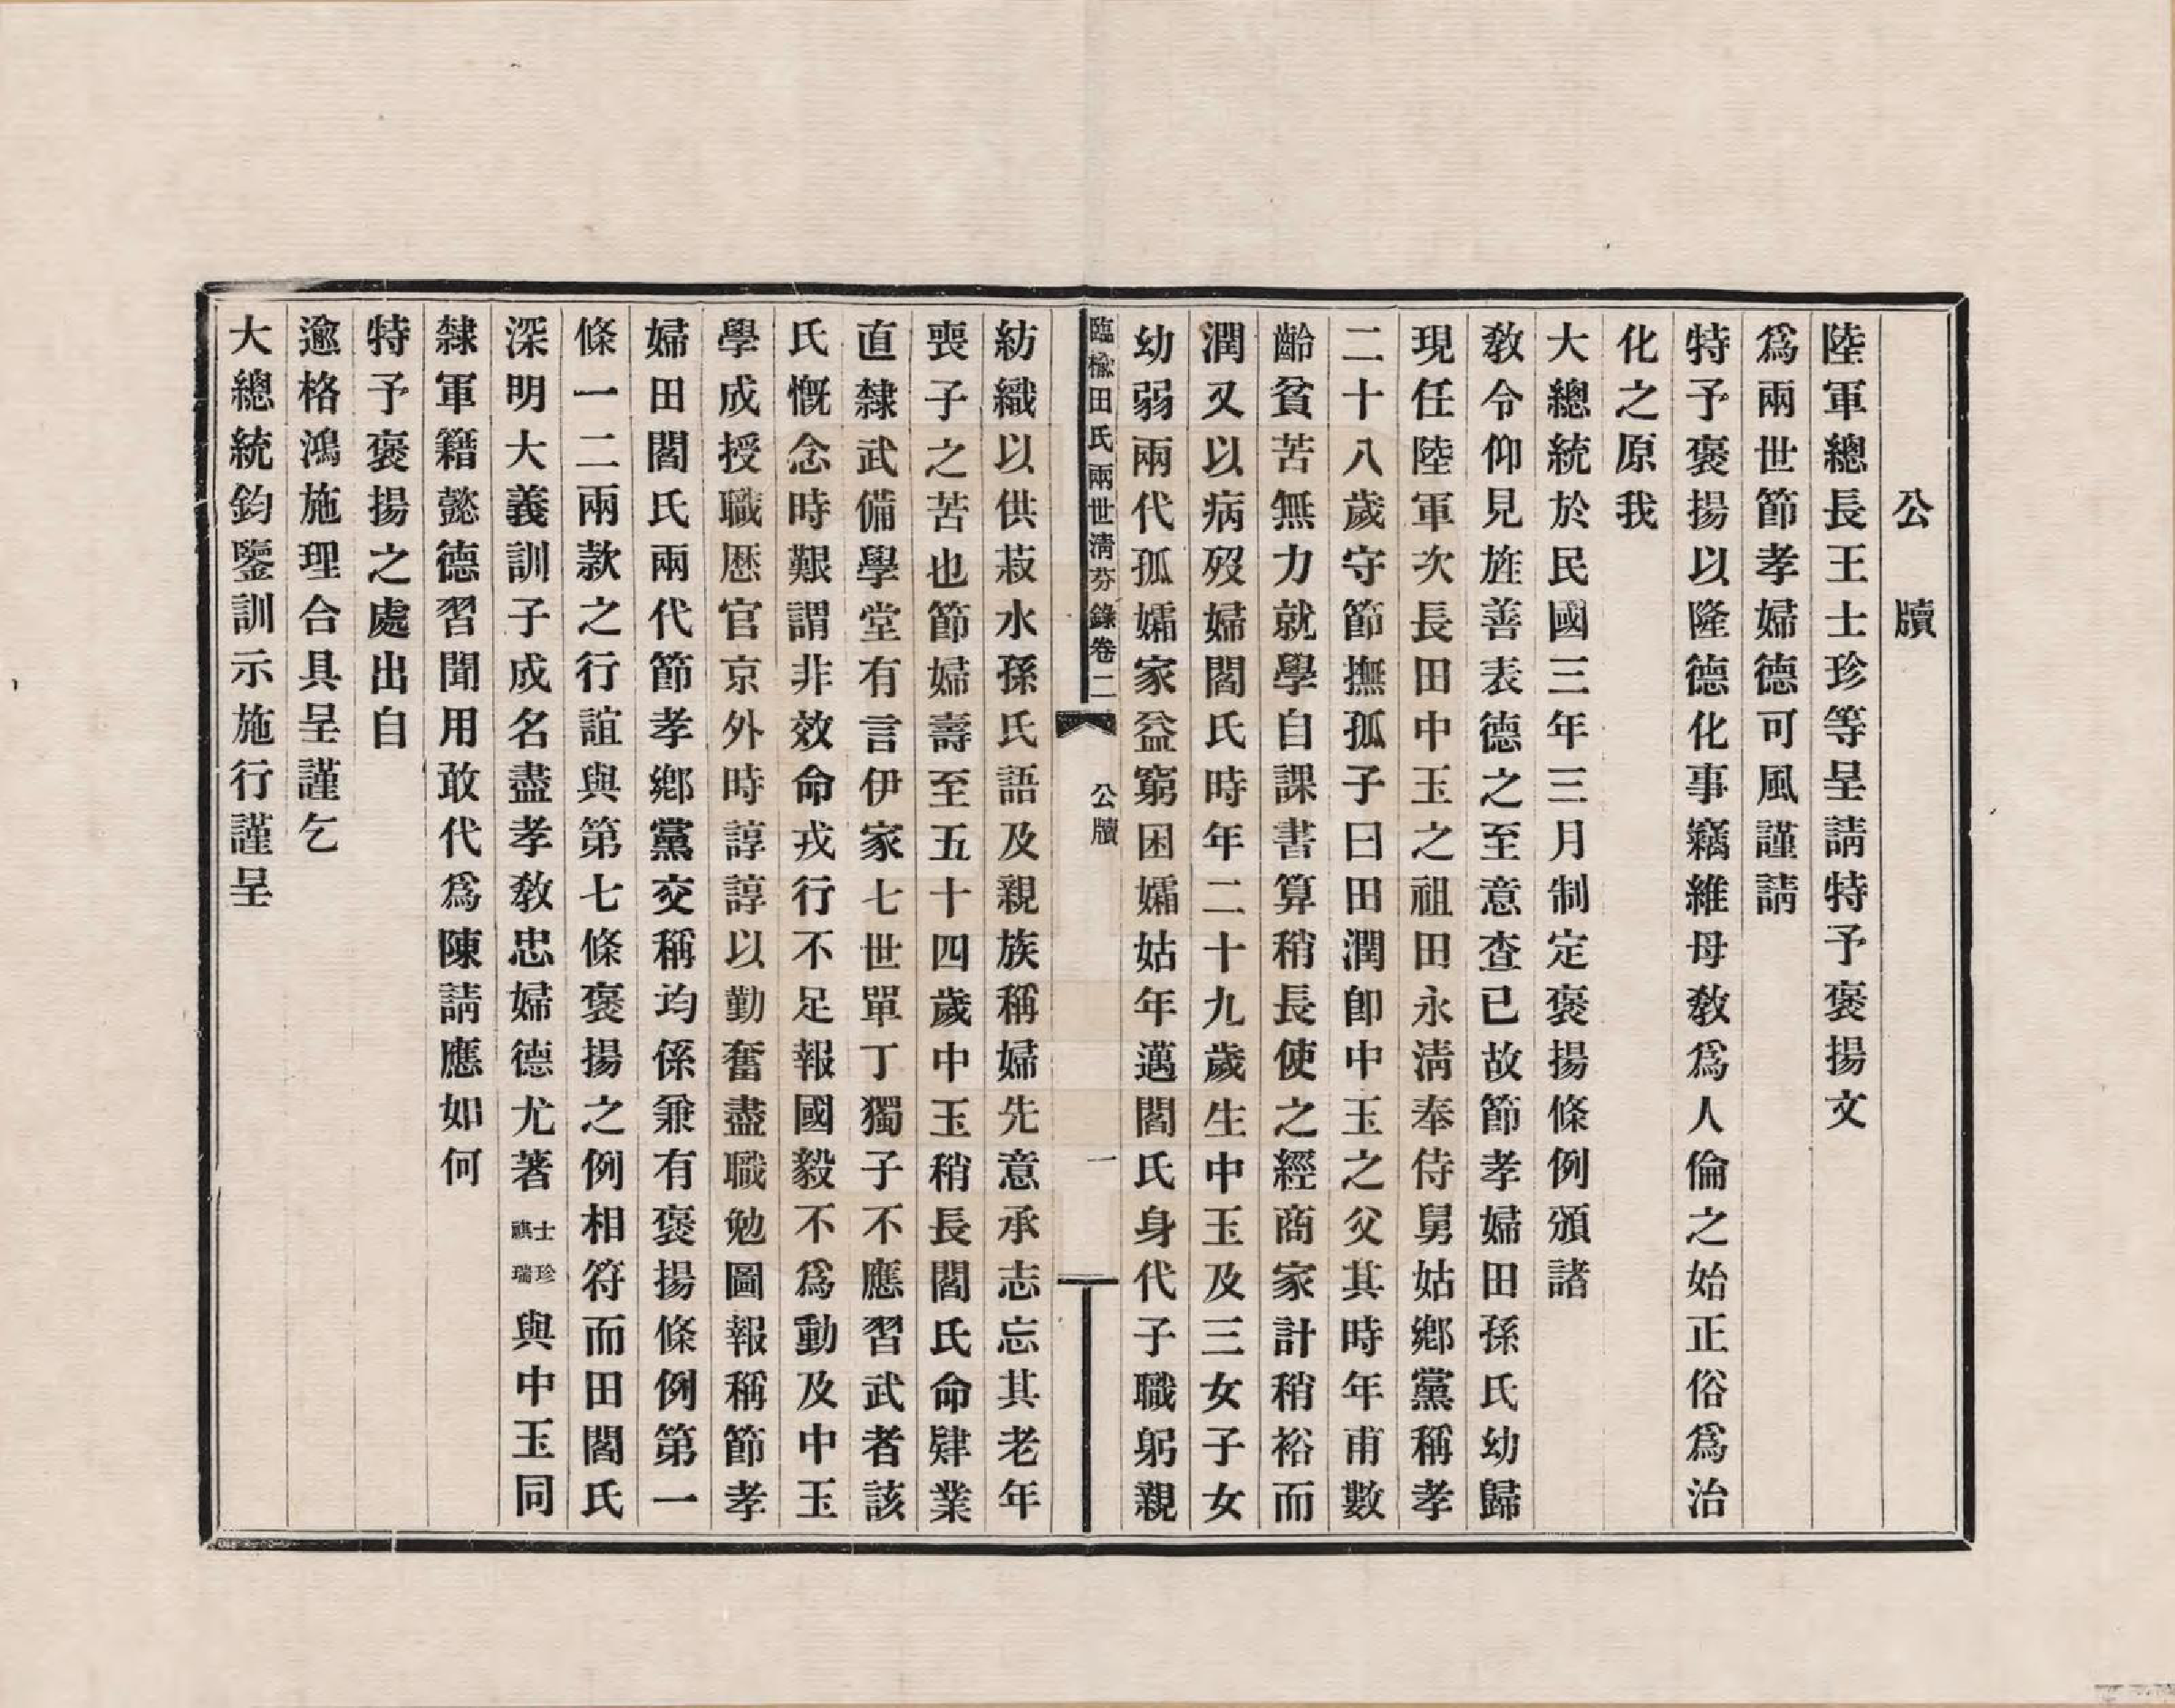 公牘
陸軍總長王士珍等呈請特予褒揚文
爲兩世節孝婦德可風謹請
特予褒揚以隆德化事竊維母教爲人倫之始正俗爲治
化之原我
大總統於民國三年三月制定褒揚條例頒諸
教令仰見旌善表德之至意查已故節孝婦田孫氏幼歸
現任陸軍次長田中玉之祖田永清奉侍舅姑鄉黨稱孝
二十八歲守節撫孤子曰田潤卽中玉之父其時年甫數
齡貧苦無力就學自課書算稍長使之經商家計稍裕而
潤又以病歿婦閻氏時年二十九歲生中玉及三女子女
幼弱兩代孤孀家益窮困孀姑年邁閻氏身代子職躬親
臨榆田氏兩世清芬錄卷二
公牘
一
紡織以供菽水孫氏語及親族稱婦先意承志忘其老年
喪子之苦也節婦壽至五十四歲中玉稍長閻氏命肄業
直隸武備學堂有言伊家七世單丁獨子不應習武者該
氏慨念時艱謂非效命戎行不足報國毅不爲動及中玉
學成授職歷官京外時諄諄以勤奮盡職勉圖報稱節孝
婦田閻氏兩代節孝鄉黨交稱均係兼有褒揚條例第一
條一二兩款之行誼與第七條褒揚之例相符而田閻氏
深明大義訓子成名盡孝教忠婦德尤著士珍祺瑞與中玉同
隸軍籍懿德習聞用敢代爲陳請應如何
特予褒揚之處出自
逾格鴻施理合具呈謹乞
大總統鈞鑒訓示施行謹呈